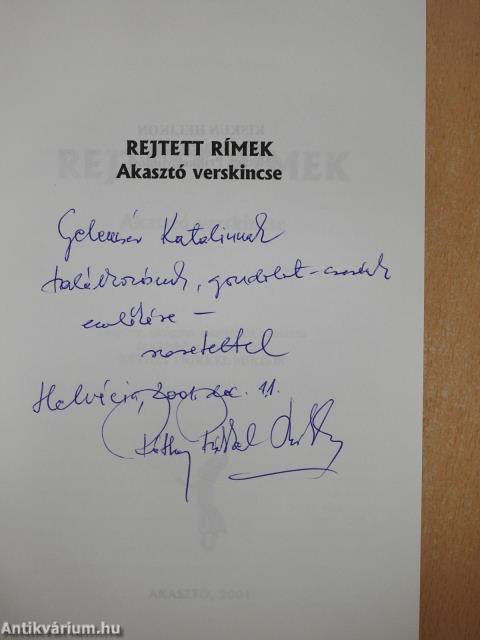 REJTETT RÍMEK
Akasztó verskincse
Gelencsér Katalinnak
találkozásunk, gondolat-cserénk
emlékére –
szeretettel
Helvécia, 2001. dec. 11.
AKASZTÓ, 2001
Antikvárium.hu